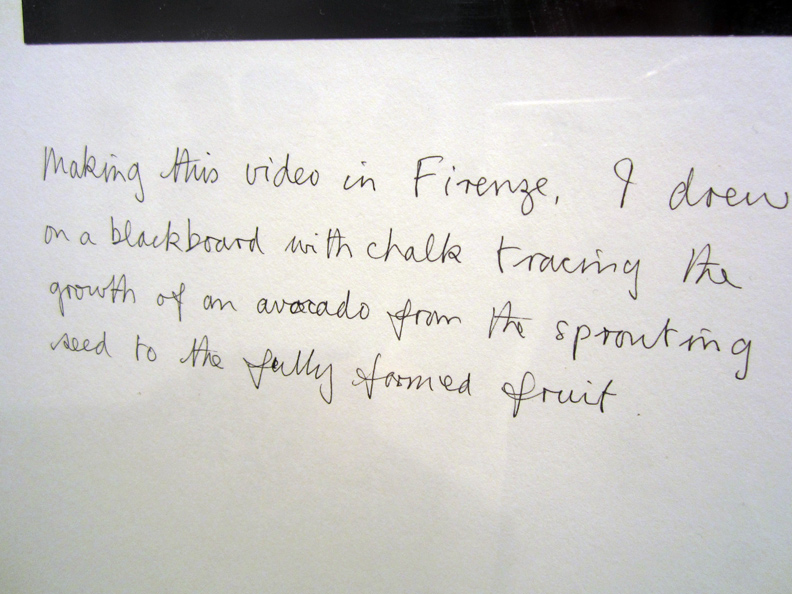 Making this video in Firenze, I drew
on a blackboard with chalk tracing the
growth of an avocado from the sprouting
seed to the fully formed fruit.